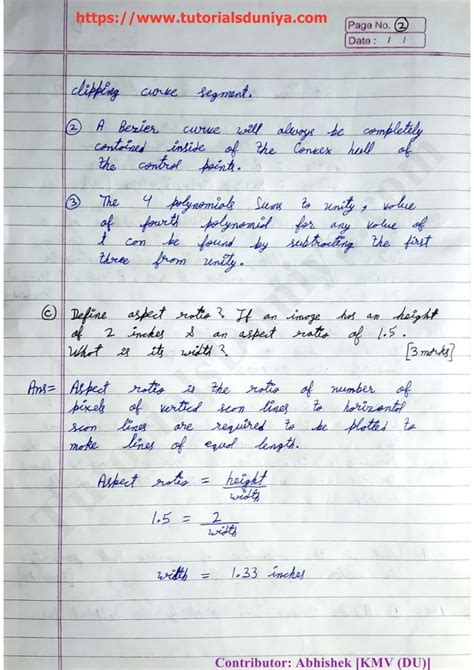 https://www.tutorialsduniya.com
Page No. 2
Date : / /
clipping curve segment.
② A Bezier curve will always be completely
contained inside of the Convex hull of
the control points.
③ The 4 polynomials sums to unity, value
of fourth polynomial for any value of
t can be found by subtracting the first
three from unity.
(c) Define aspect ratio? If an image has an height
of 2 inches & an aspect ratio of 1.5.
What is its width? [3 marks]
Ans= Aspect ratio is the ratio of number of
pixels of vertical scan lines to horizontal
scan lines are required to be plotted to
make lines of equal length.
Aspect ratio = height
width
1.5 = 2
width
width = 1.33 inches
Contributor: Abhishek [KMV (DU)]